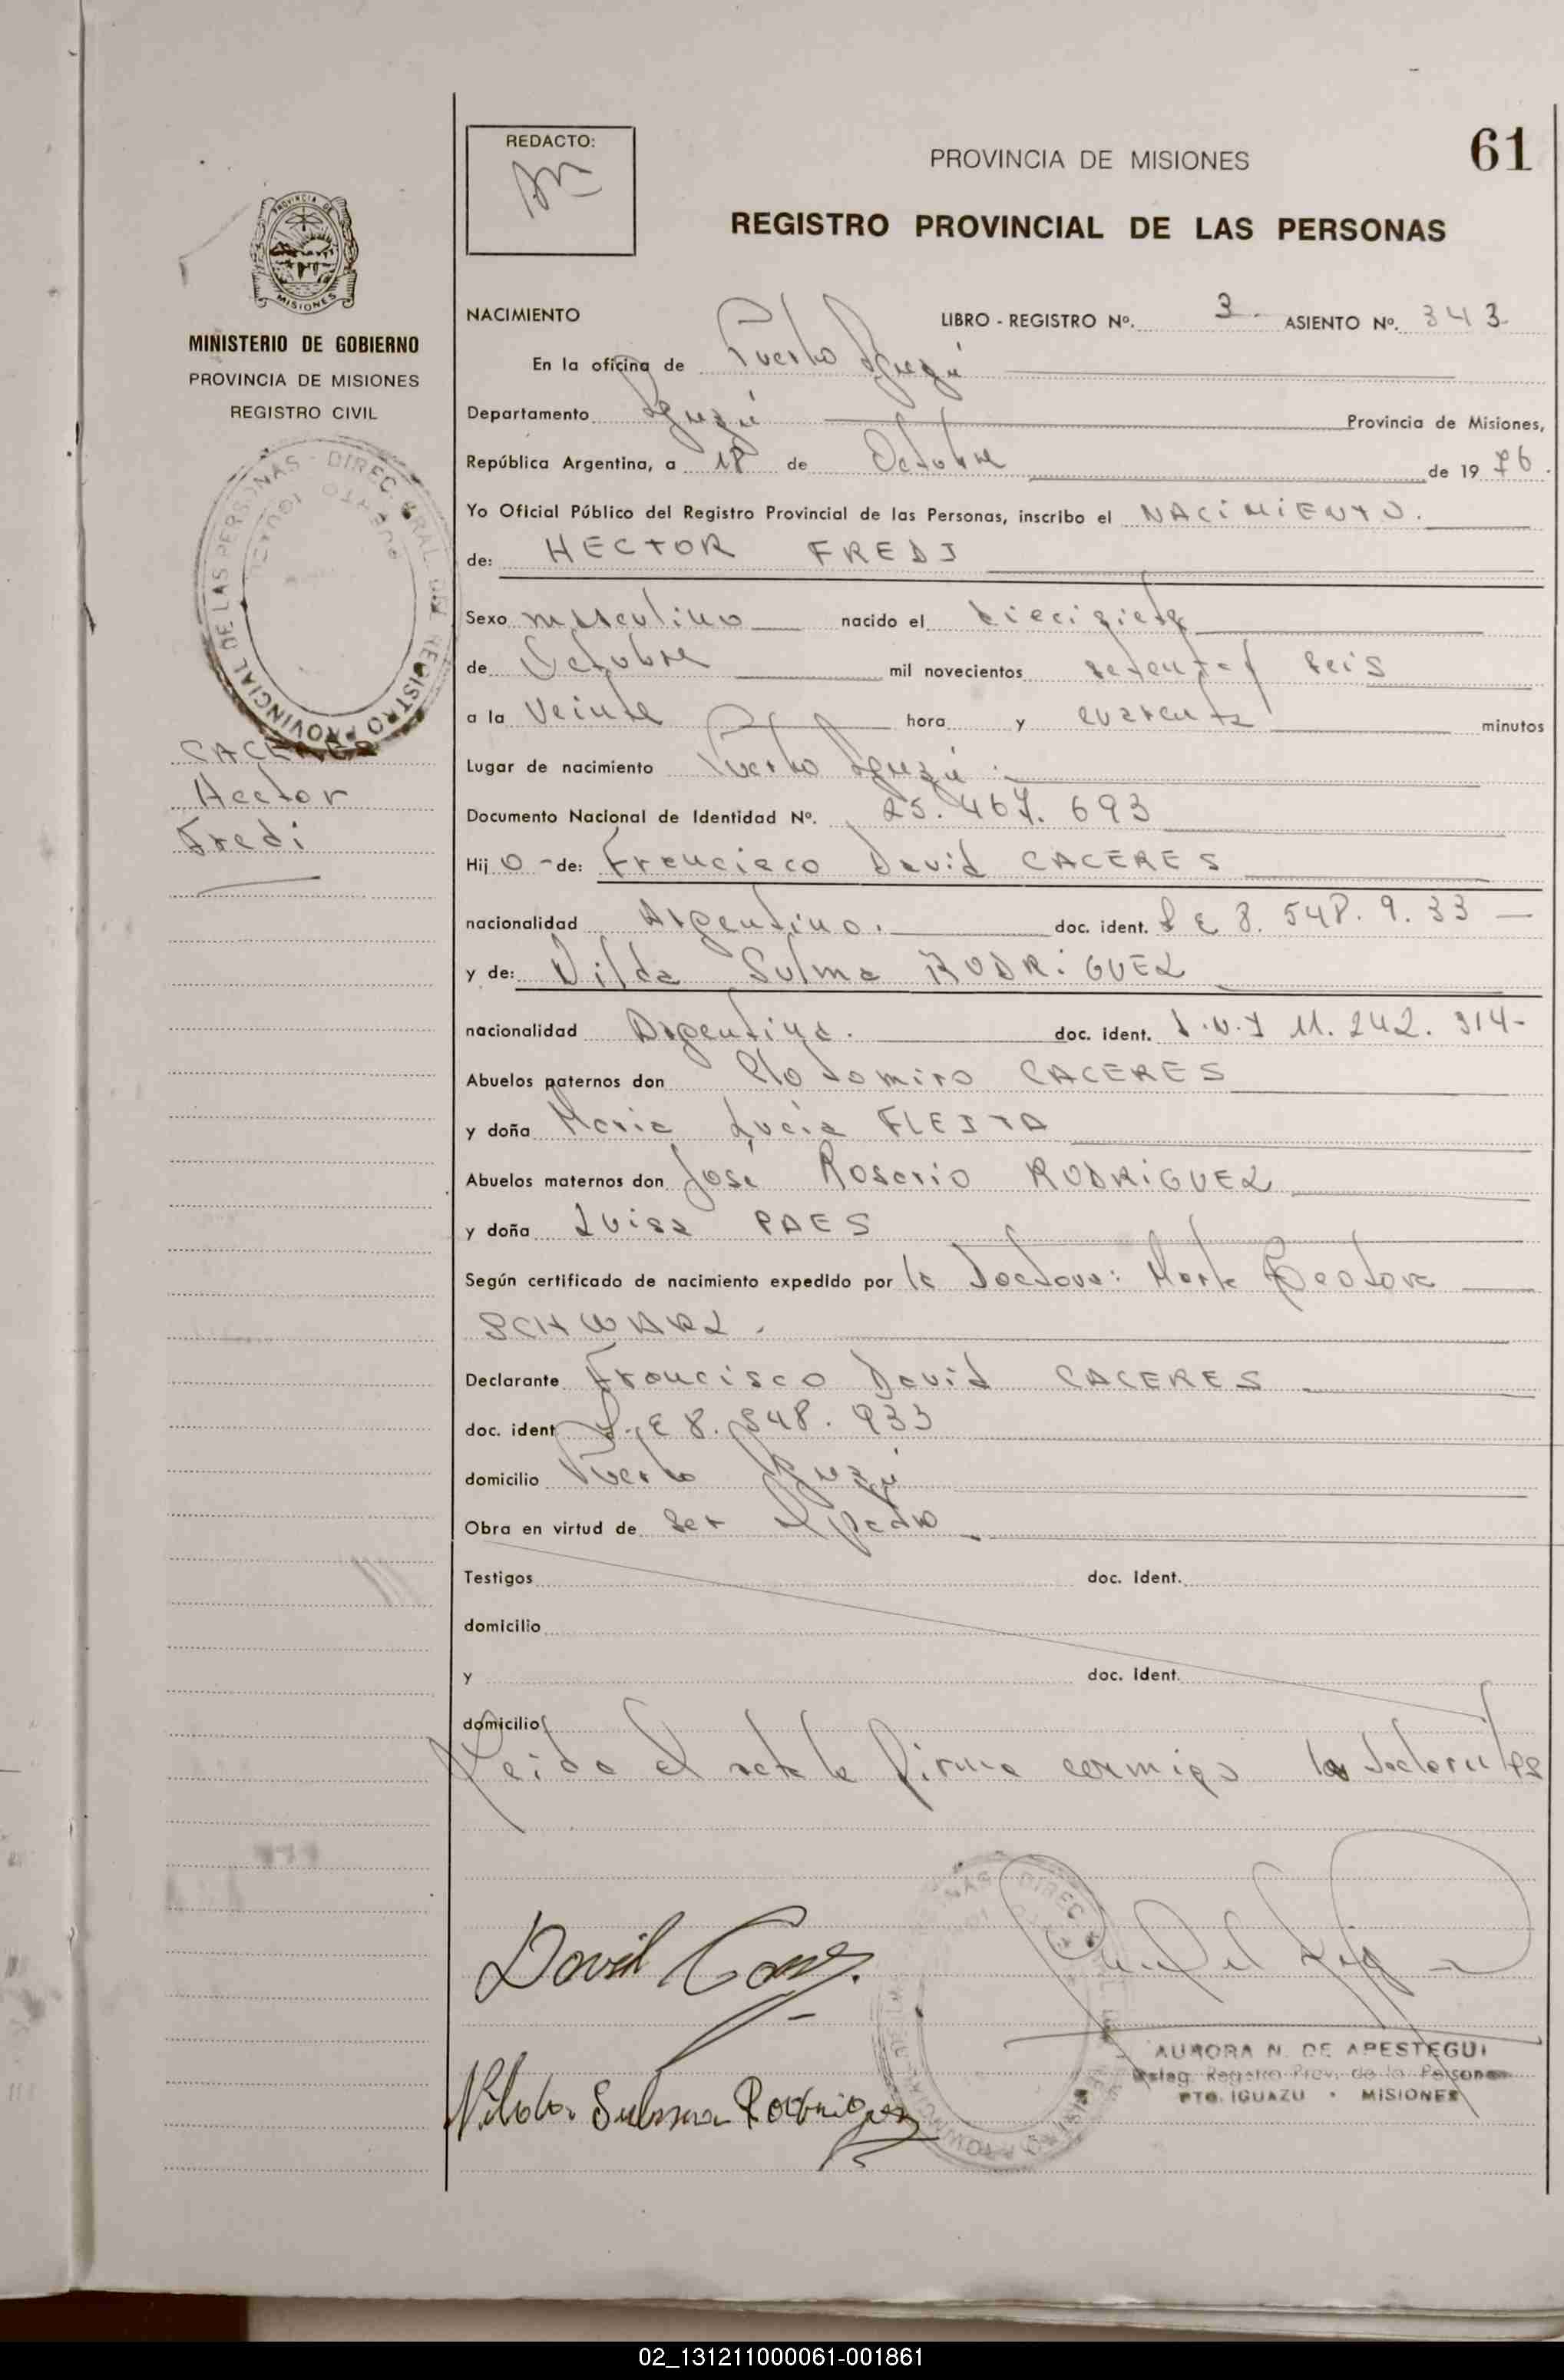 REDACTO:
PROVINCIA DE MISIONES
61
REGISTRO PROVINCIAL DE LAS PERSONAS
MISIONES
MINISTERIO DE GOBIERNO
PROVINCIA DE MISIONES
REGISTRO CIVIL
CACERES
Hector
Fredi
NACIMIENTO LIBRO - REGISTRO Nº. 3 ASIENTO Nº. 343
En la oficina de Puerto Iguazú
Departamento Iguazú Provincia de Misiones,
República Argentina, a 18 de Octubre de 1976.
Yo Oficial Público del Registro Provincial de las Personas, inscribo el NACIMIENTO.
de: HECTOR FREDI
Sexo masculino nacido el diecisiete
de Octubre mil novecientos setenta y seis
a la veinte hora y cuarenta minutos
Lugar de nacimiento Puerto Iguazú.
Documento Nacional de Identidad Nº. 25.467.693
Hijo - de: Francisco David CACERES
nacionalidad Argentino. doc. ident. L E 8.548.9.33 —
y de: Nilda Sulma RODRiGUEZ
nacionalidad Argentina. doc. ident. D.N.I 11.242.914-
Abuelos paternos don Clodomiro CACERES
y doña Maria Lucía FLEITA
Abuelos maternos don José Rosario RODRiGUEZ
y doña Luisa PAES
Según certificado de nacimiento expedido por la Doctora: Marta
SCHWARZ.
Declarante Francisco David CACERES
doc. ident L.E 8.548.933
domicilio Puerto Iguazú
Obra en virtud de ser el padre
Testigos doc. Ident.
domicilio
y doc. Ident.
domicilio
Leida el acta la firma conmigo los declarantes
David
Nilda Sulma Rodriguez
AURORA N. DE APESTEGUI
Deleg. Registro Prov. de las Personas
PTO. IGUAZU - MISIONES
02_131211000061-001861